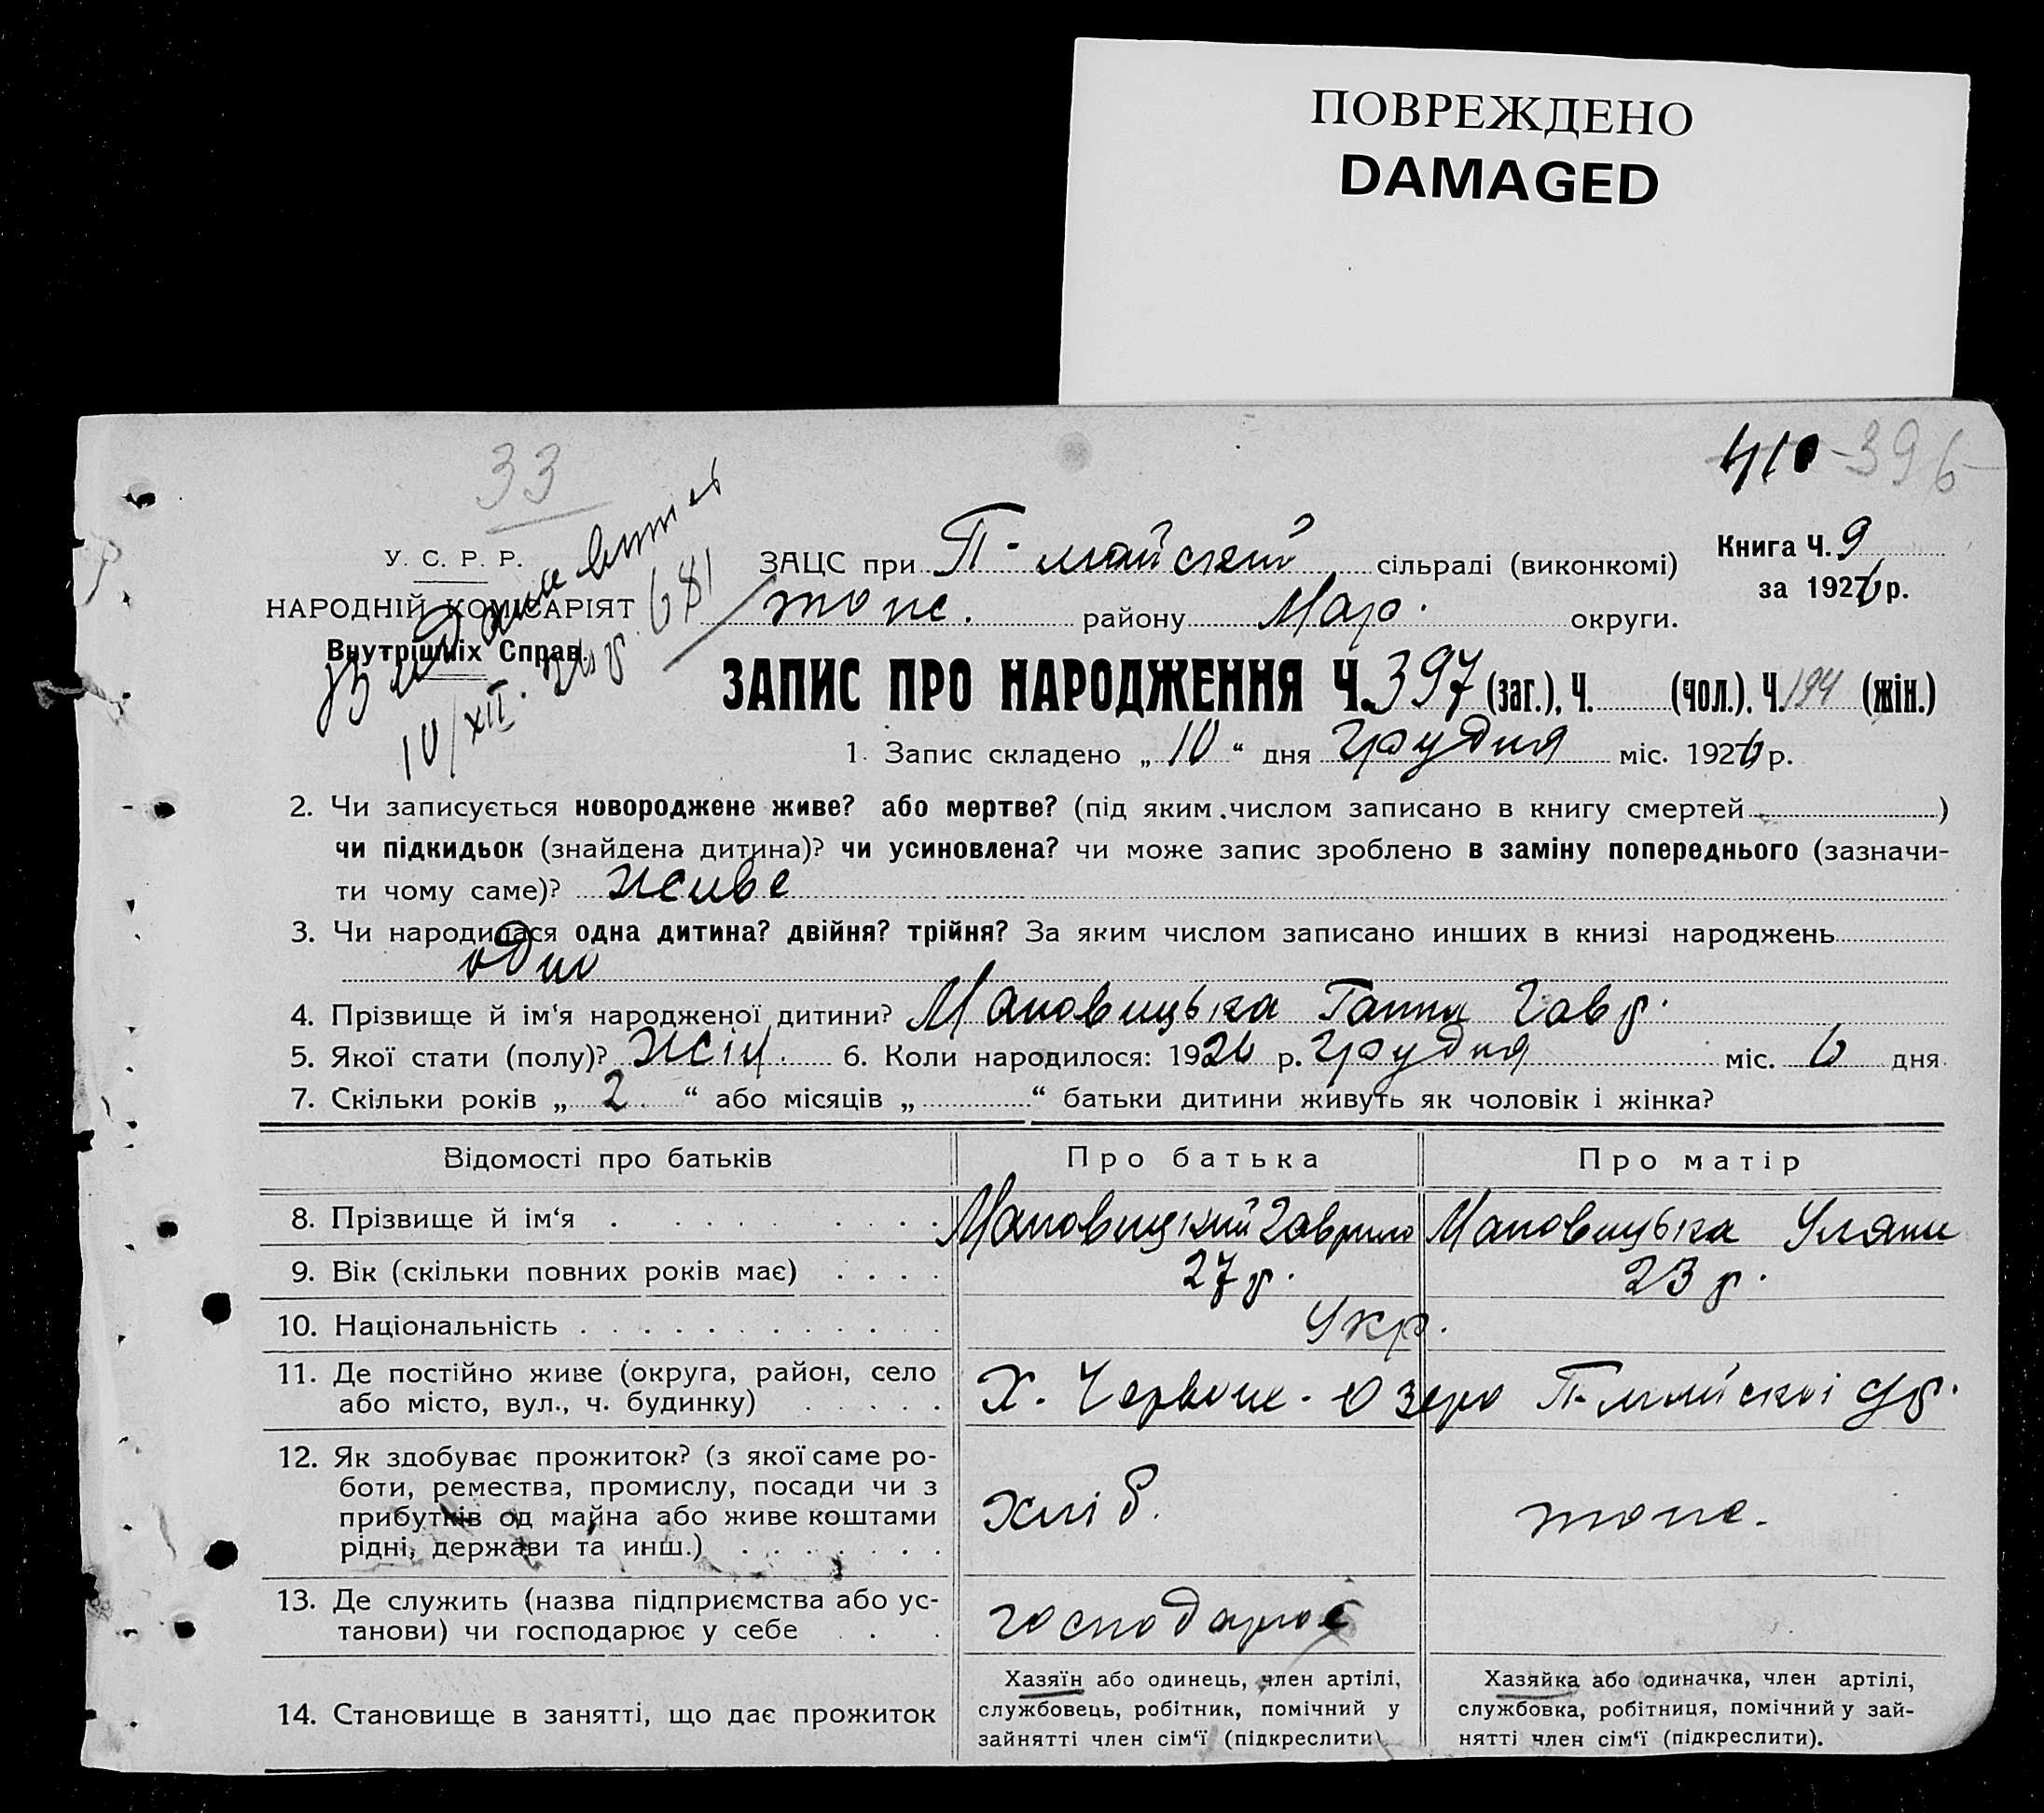 ПОВРЕЖДЕНО
DAMAGED
410 396
33
У. С. Р. Р.
НАРОДНІЙ КОМІСАРІЯТ
Внутрішніх Справ.
10/XII. 26 р. 681
ЗАЦС при П-майській сільраді (виконкомі)
Книга Ч. 9
за 1926 р.
тоже. району Мар. округи.
ЗАПИС ПРО НАРОДЖЕННЯ Ч. 397 (заг.), Ч. (чол.), Ч. 194 (жін.)
1. Запис складено „ 10 “ дня Грудня міс. 1926 р.
2. Чи записується новороджене живе? або мертве? (під яким числом записано в книгу смертей )
чи підкидьок (знайдена дитина)? чи усиновлена? чи може запис зроблено в заміну попереднього (зазначи-
ти чому саме)? живе
3. Чи народилася одна дитина? двійня? трійня? За яким числом записано инших в книзі народжень
одно
4. Прізвище й ім‘я народженої дитини? Мановицька Ганна Гавр.
5. Якої стати (полу)? Жін. 6. Коли народилося: 1926 р. Грудня міс. 6 дня.
7. Скільки років „ 2. “ або місяців „ “ батьки дитини живуть як чоловік і жінка?
Відомості про батьків Про батька Про матір
8. Прізвище й ім‘я Мановицький Гаврило Мановицька Уляна
9. Вік (скільки повних років має) 27 р. 23 р.
10. Національність Укр.
11. Де постійно живе (округа, район, село
або місто, вул., ч. будинку)
Х. Червоне-Озеро П-майскої
12. Як здобуває прожиток? (з якої саме ро-
боти, ремества, промислу, посади чи з
прибутків од майна або живе коштами
рідні, держави та инш.)
хліб. тоже.
13. Де служить (назва підприємства або ус-
танови) чи господарює у себе
господарює
14. Становище в занятті, що дає прожиток
Хазяїн або одинець, член артілі,
службовець, робітник, помічний у
зайнятті член сім‘ї (підкреслити)
Хазяйка або одиначка, член артілі,
службовка, робітниця, помічний у зай-
нятті член сім‘ї (підкреслити).